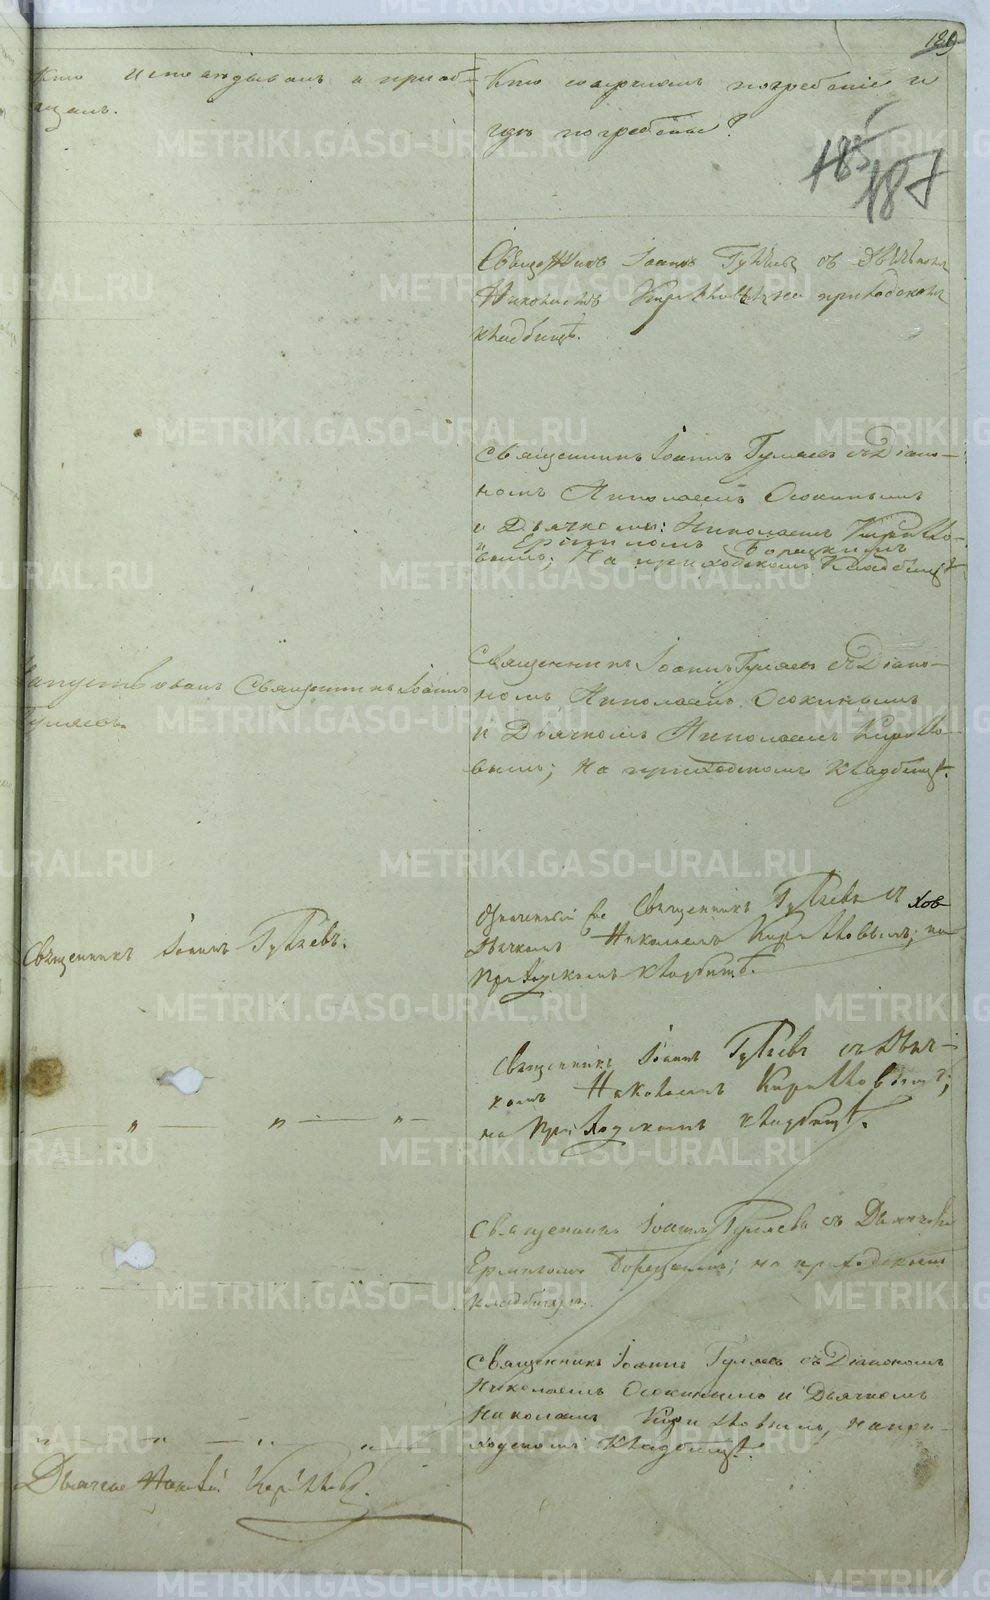 189
Кто исповѣдывалъ и пріоб-
щалъ.
Кто совершалъ погребеніе и
гдѣ погребены?
185
187
Священникъ Іоаннъ Гуляевъ съ Дьячкомъ
Николаемъ на приходскомъ
кладбищѣ.
Священникъ Іоаннъ Гуляевъ съ Діако-
номъ Николаемъ Осокинымъ
и Дьячкомъ: Николаемъ
и Ермиломъ Борецкимъ
вымъ; На приходскомъ Кладбищѣ
Напутствовалъ Священникъ Іоаннъ
Гуляевъ.
Священникъ Іоаннъ Гуляевъ съ Діако-
номъ Николаемъ Осокинымъ
и Дьячкомъ Николаемъ
вымъ; на приходскомъ кладбищѣ.
Священникъ Іоаннъ Гуляевъ.
Означенный же Священникъ Гуляевъ съ
Дьячкомъ Николаемъ на
приходскомъ кладбищѣ.
Священникъ Іоаннъ Гуляевъ съ Дьяч-
комъ Николаемъ
на приходскомъ кладбищѣ.
" — " — " —
Священникъ Іоаннъ Гуляевъ съ Дьячкомъ
Ермиломъ Борецкимъ; на приходскомъ
кладбищѣ.
Священникъ Іоаннъ Гуляевъ съ Діакономъ
Николаемъ Осокинымъ и Дьячкомъ
Николаемъ на при-
ходскомъ Кладбищѣ.
" " — " "
Дьячекъ Николай
METRIKI.GASO-URAL.RU